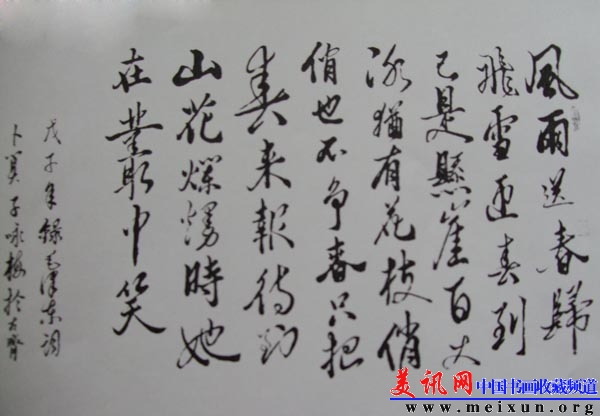 風雨送春歸
飛雪迎春到
已是懸崖百丈
冰猶有花枝俏
俏也不争春只把
春来報待到
山花爛熳時她
在叢中笑
戊子年錄毛澤東詞
卜算子咏梅於
美讯网 中国书画收藏频道
www.meixun.org